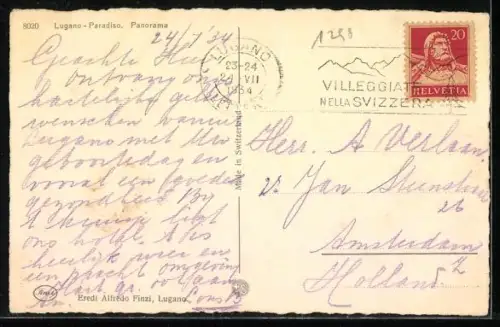 8020 Lugano - Paradiso. Panorama
24/7/34
Geachte Heer
ontvang onze
hartelijke geluk
wenschen vanuit
Lugano met Uw
geboortedag en
vooral een goede
gezondheid. Bij
X kruisje ligt
ons hotel. Het is
heerlijk weer en
een pracht omgeving
Eredi Alfredo Finzi, Lugano.
Made in Switzerland
LUGANO
23-24
VII
1934
VILLEGGIAT
NELLA SVIZZERA
1298
20
HELVETIA
Herr. A Verlaan.
Jan Steenstraat
Amsterdam
Z
Holland